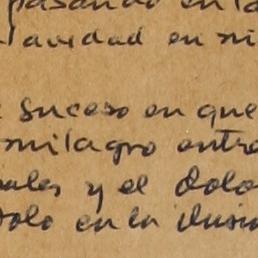 pasando en la
lavidad en mi
suceso en que
milagro entre
ales y el dolo
solo en la ilusio